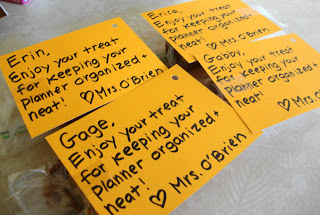 Erin,
Enjoy your treat
for keeping your
planner organized +
neat!
♡ Mrs. O'Brien
Erica,
Enjoy your treat
for keeping your
planner organized +
neat!
♡ Mrs. O'Br
Gabby,
Enjoy your treat
for keeping your
planner organized +
neat!
♡ Mrs. O'Brien
Gage,
Enjoy your treat
for keeping your
planner organized +
neat!
♡ Mrs. O'Brien